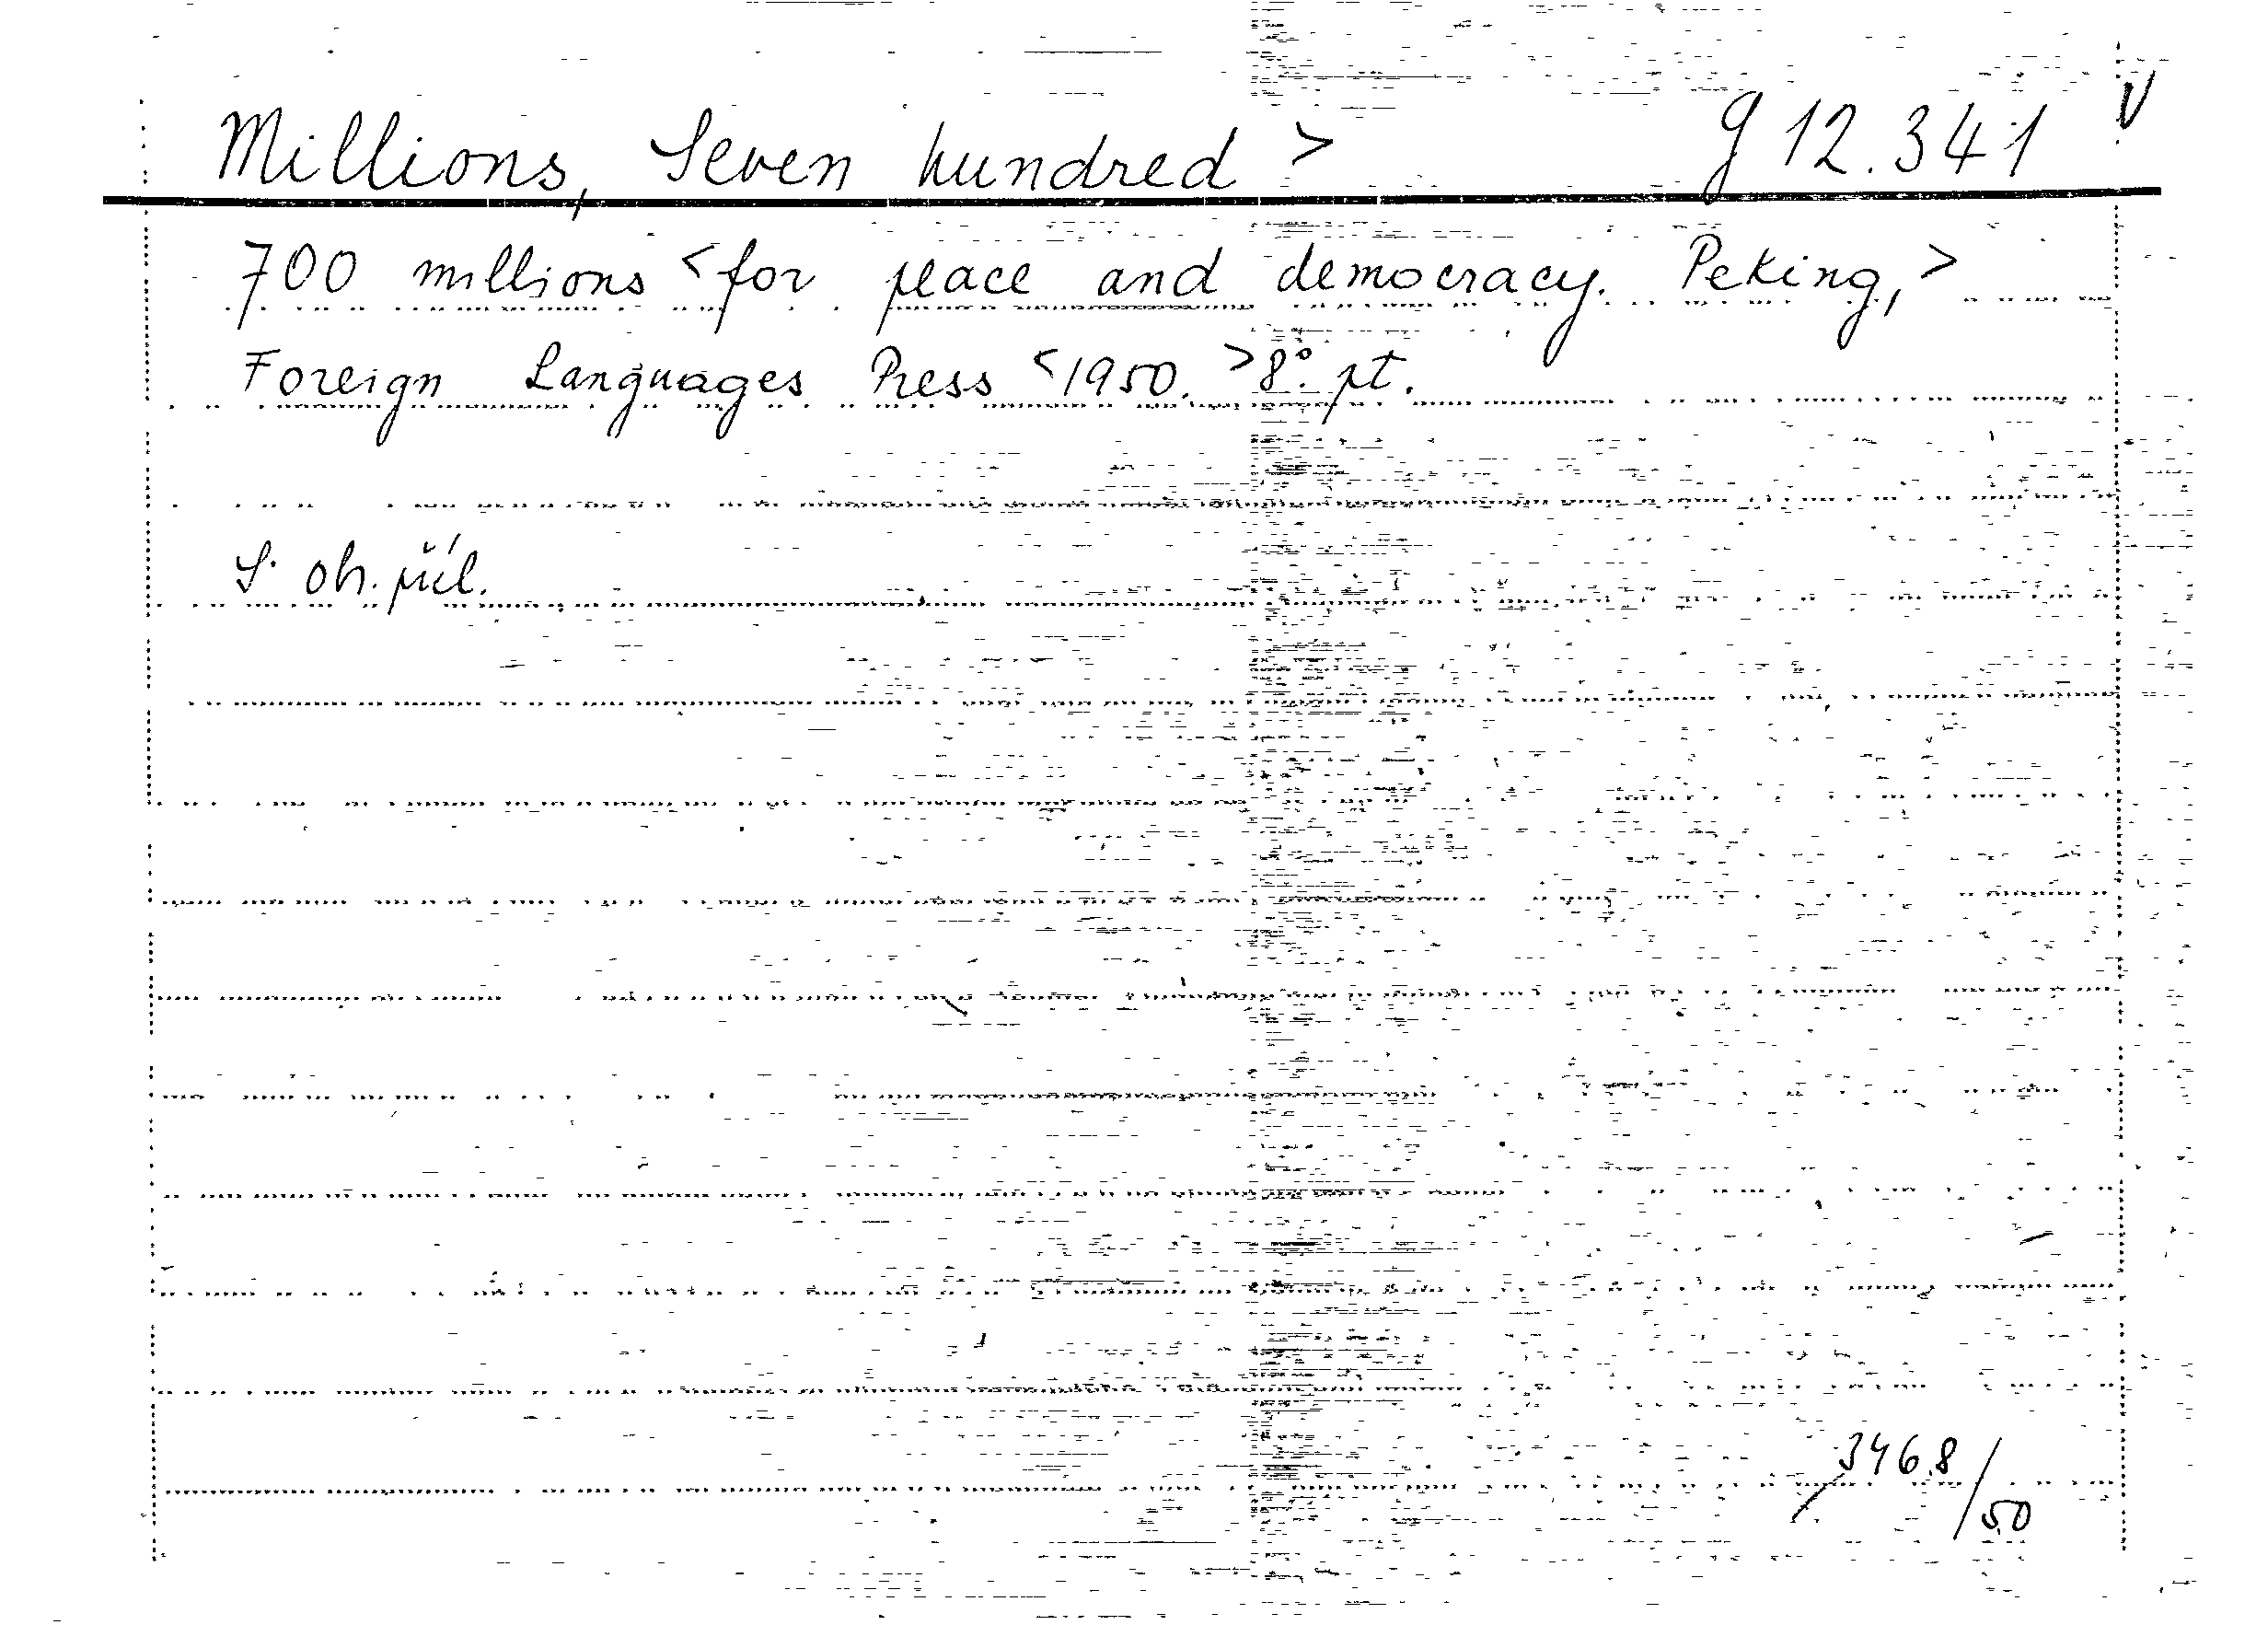 Millions, Seven hundred > g 12.341 V
700 millions < for peace and democracy. Peking, >
Foreign Languages Press < 1950. > 8°. pt.
S ob. příl.
3468/50